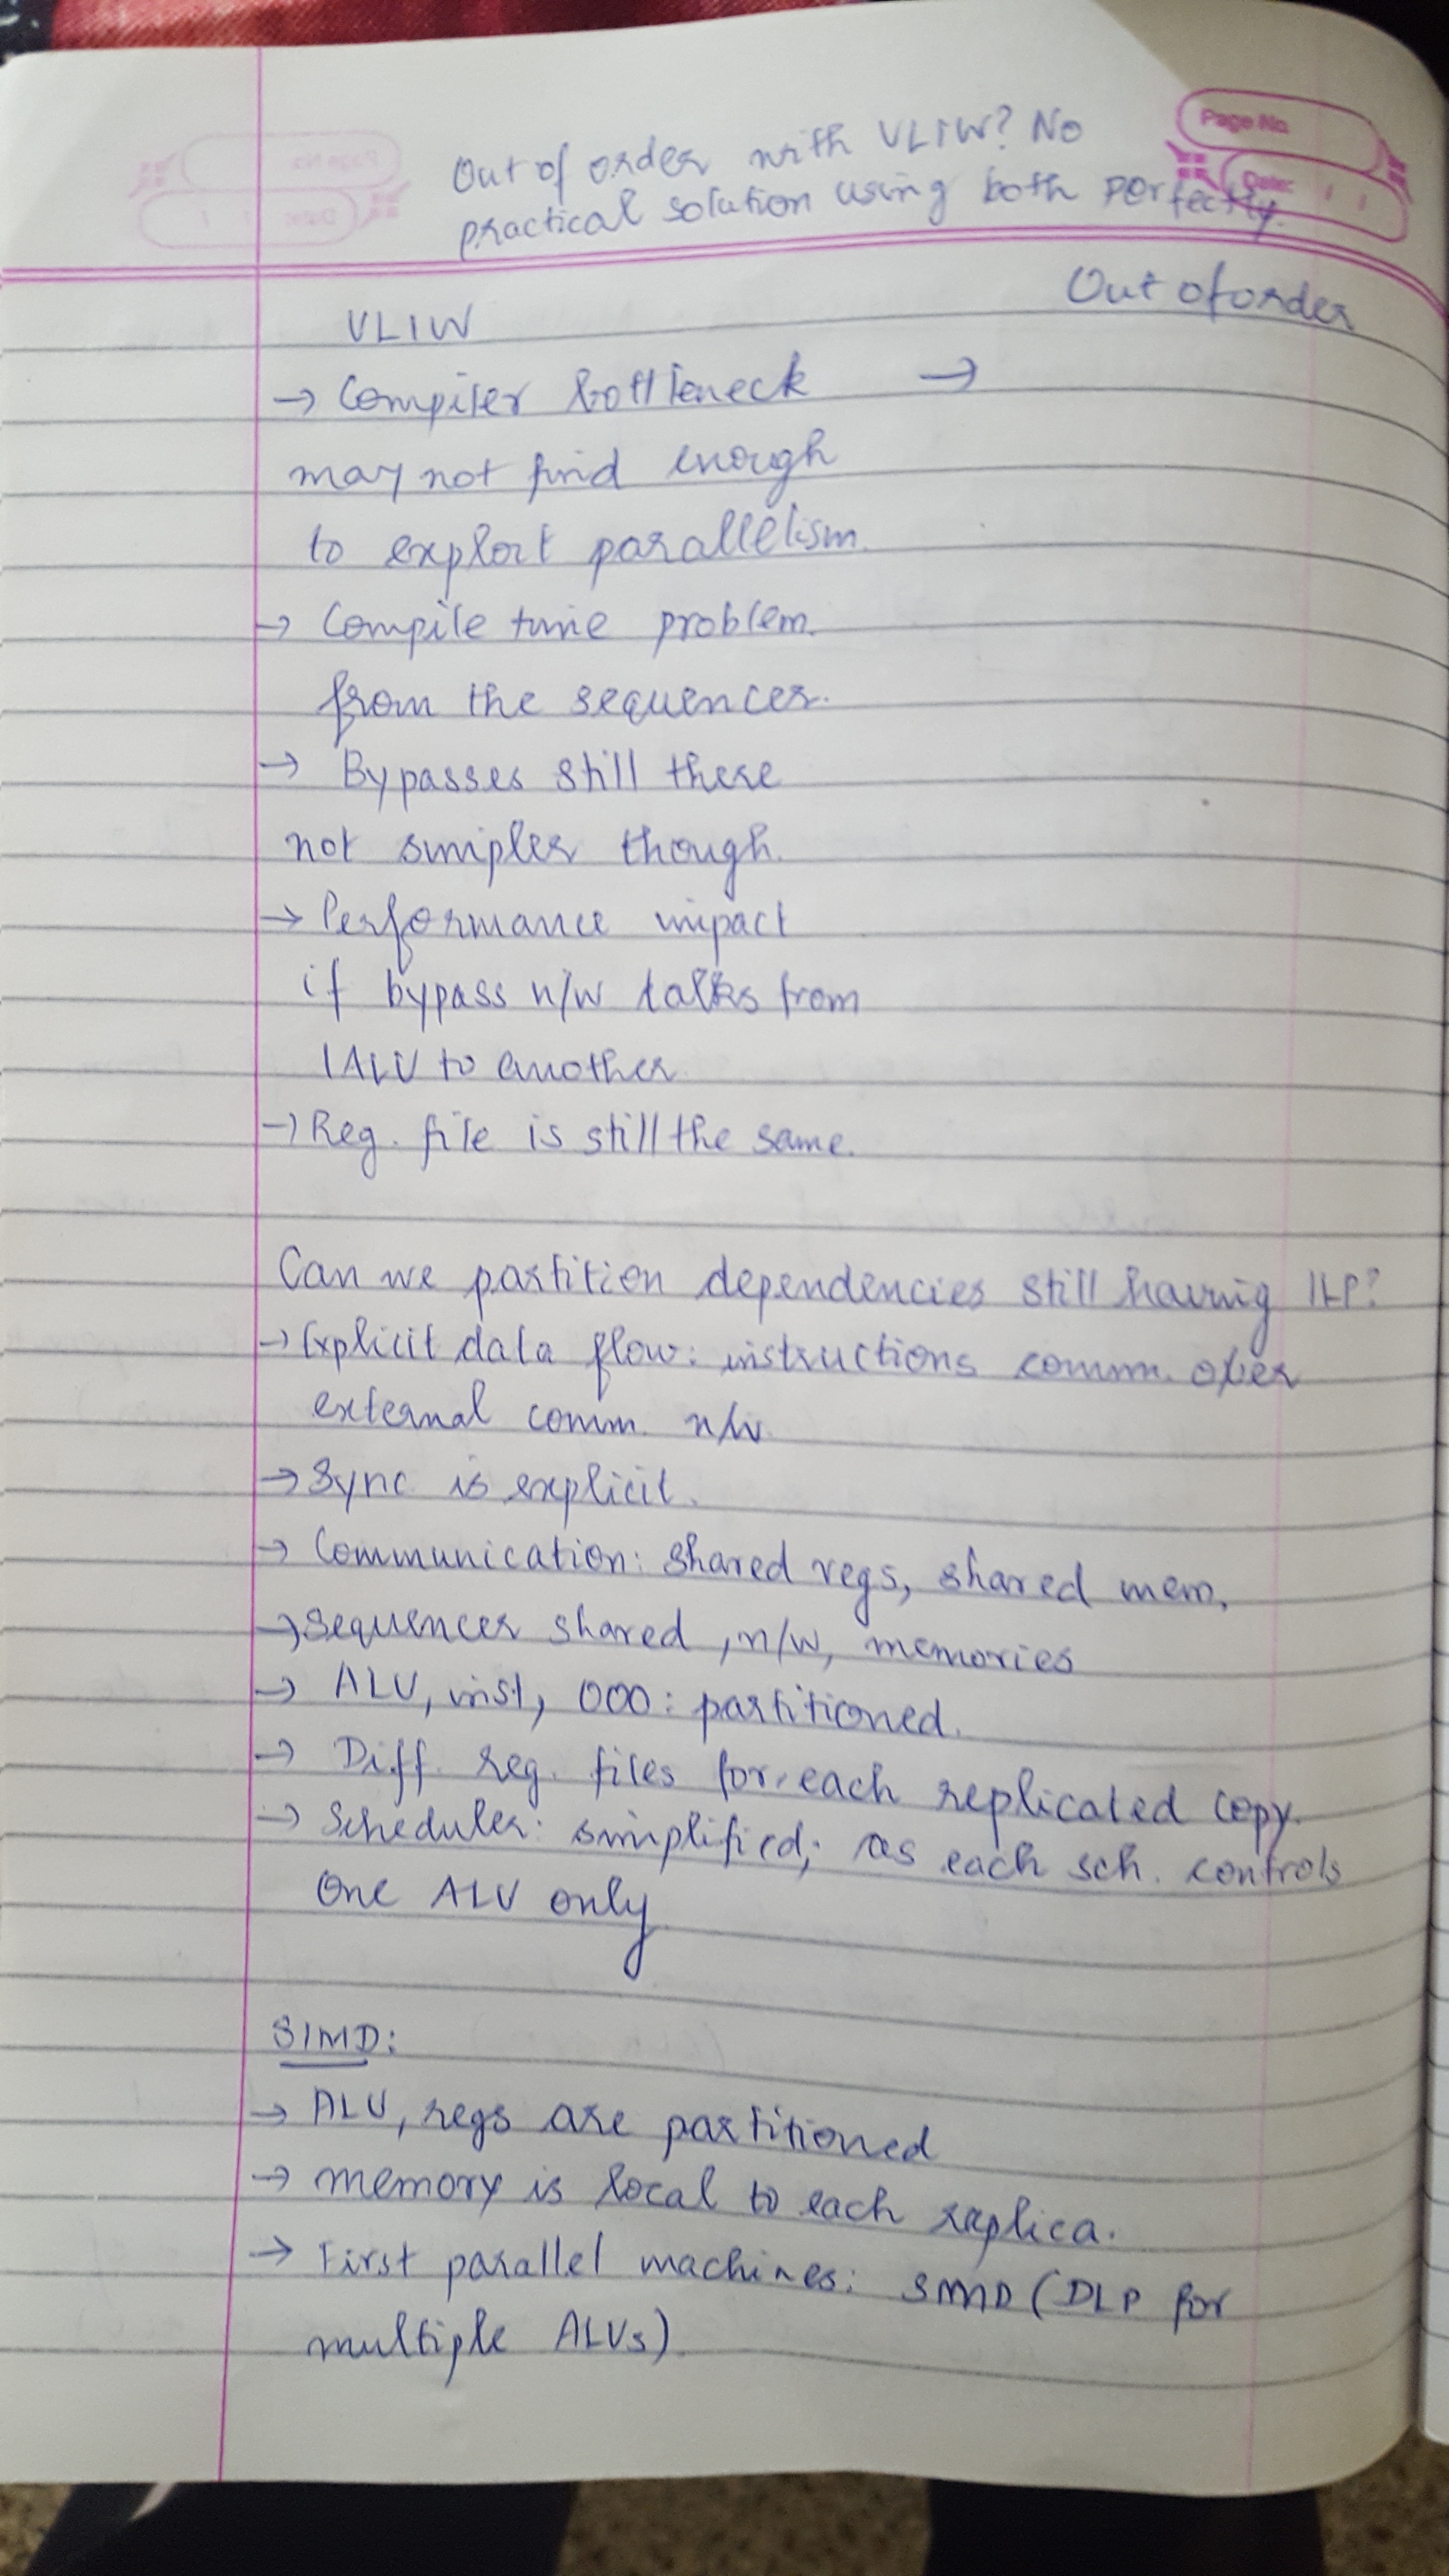 Page No.
Date:
Out of order with VLIW? No
practical solution using both perfectly.
VLIW
Out of order
→ Compiler bottleneck →
may not find enough
to exploit parallelism.
→ Compile time problem.
from the sequencer.
→ Bypasses still there
not simpler though.
→ Performance impact
if bypass n/w talks from
1ALU to another
→ Reg. file is still the same.
Can we partition dependencies still having ILP?
→ Explicit data flow: instructions comm. over
external comm. n/w.
→ Sync is explicit.
→ Communication: shared regs, shared mem,
→ Sequencer shared, n/w, memories
→ ALU, inst, OOO: partitioned.
→ Diff. reg. files for each replicated copy.
→ Scheduler: simplified; as each sch. controls
One ALU only
SIMD:
→ ALU, regs are partitioned
→ memory is local to each replica.
→ First parallel machines: SIMD (DLP for
multiple ALUs)